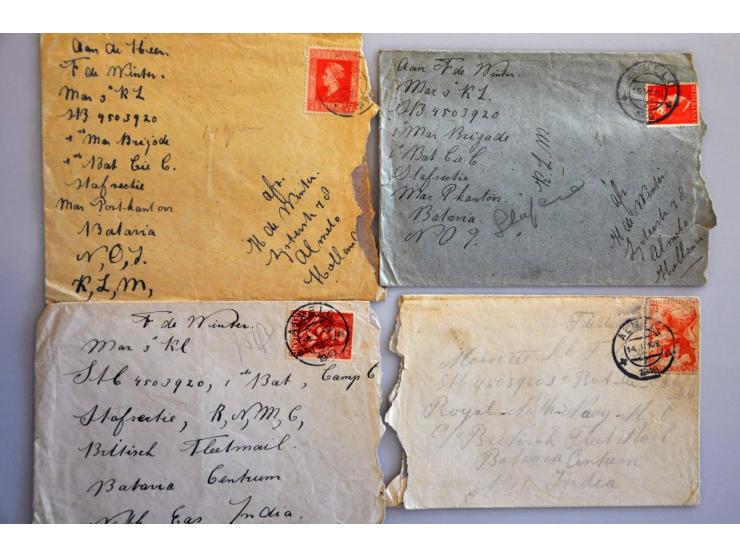 Aan de Heer
F de Winter.
Mar 3e KL
StB 4503920
1ste Mar Brigade
1ste Bat Cie C.
Stafsectie
Mar Postkantoor
Batavia
N, O, J.
K, L, M,
afz.
H de Winter.
78
Almelo
Holland
NEDERLAND
Aan F de Winter.
Mar 3e KL.
StB 4503920
1 Mar Brigade
1e Bat Cie C
Stafsectie
Mar P kantoor
Batavia
N O J.
K. L. M.
afz
H de Winter
78
Almelo
Holland
ALMELO
F de Winter.
Mar 3e Kl
StB 4503920, 1ste Bat, Camp C
Stafsectie, R, N, M, C,
Brittisch Fleetmail.
Batavia Centrum
Neth East India.
F de Winter
StB 4503920 1e Bat
Royal Neth Navy M.C
C/o Brittisch Fleet Mail
Batavia Centrum
India
ALMELO
NEDERLAND